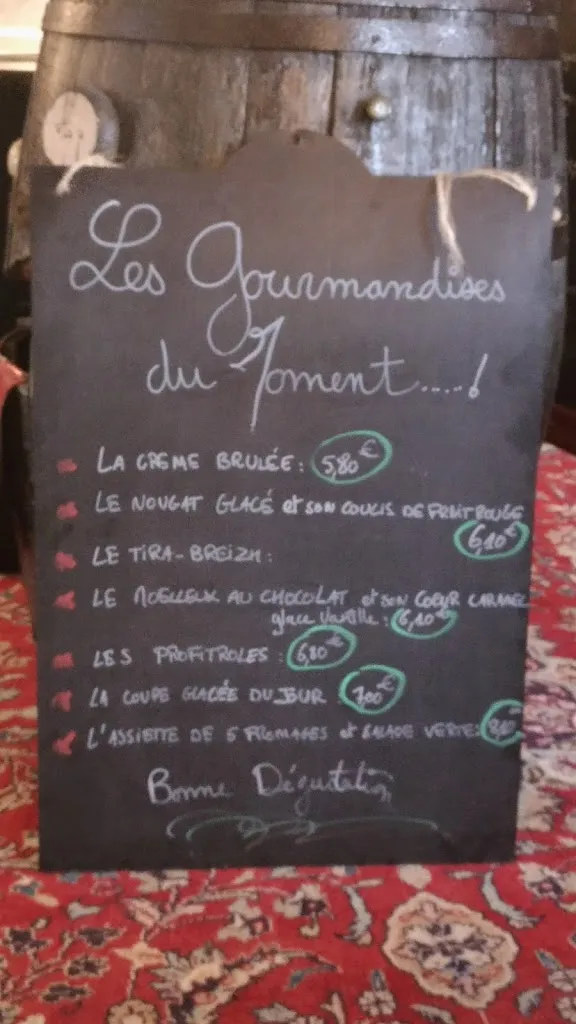 Les Gourmandises
du Moment.....!
LA CREME BRULÉE : 5,80€
LE NOUGAT GLACÉ et son COULIS DE FRUIT ROUGE
6,10€
LE TIRA-BREIZH :
LE MOELLEUX AU CHOCOLAT et son COEUR CARAMEL
glace Vanille : 6,10€
LES PROFITROLES : 6,80€
LA COUPE GLACÉE DU JOUR : 7,00€
L'ASSIETTE DE 5 FROMAGES et SALADE VERTE:
Bonne Dégustation